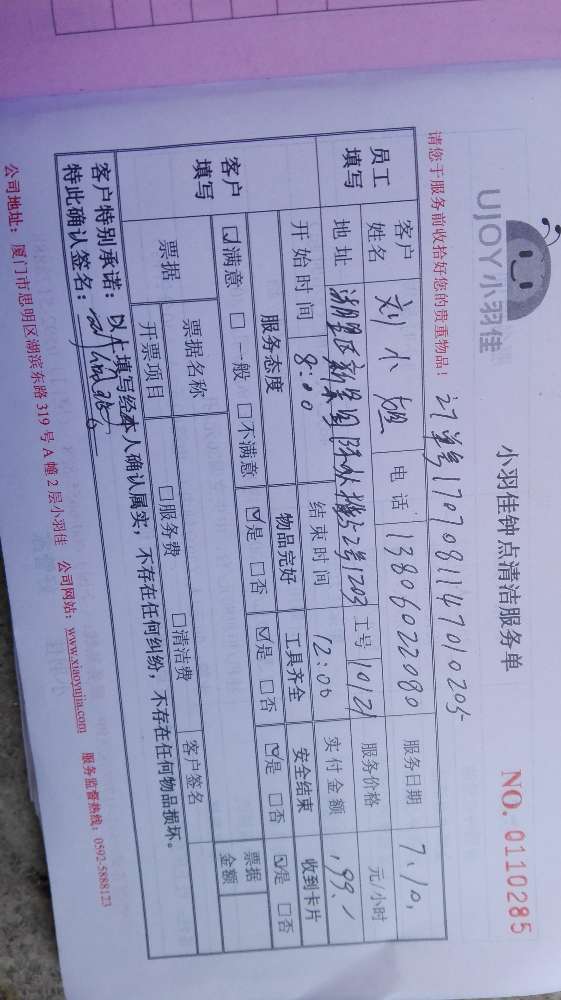 UJOY小羽佳
小羽佳钟点清洁服务单
NO. 0110285
请您于服务前收拾好您的贵重物品！
订单号1707081147010205
员工填写 客户姓名 刘小姐 电话 13806022080 服务日期 7.10.
地址 工号 10121 服务价格 元/小时
开始时间 8:00 结束时间 12:00 实付金额 199.
客户填写 服务态度 物品完好 工具齐全 安全结束 收到卡片
☑满意 □一般 □不满意 ☑是 □否 ☑是 □否 ☑是 □否 ☑是 □否
票据 票据名称 客户签名 票据金额
开票项目 □服务费 □清洁费
客户特别承诺：以上填写经本人确认属实，不存在任何纠纷，不存在任何物品损坏。
特此确认签名：
公司地址：厦门市思明区湖滨东路319号A幢2层小羽佳 公司网站：www.xiaoyujia.com 服务监督热线：0592-5888123